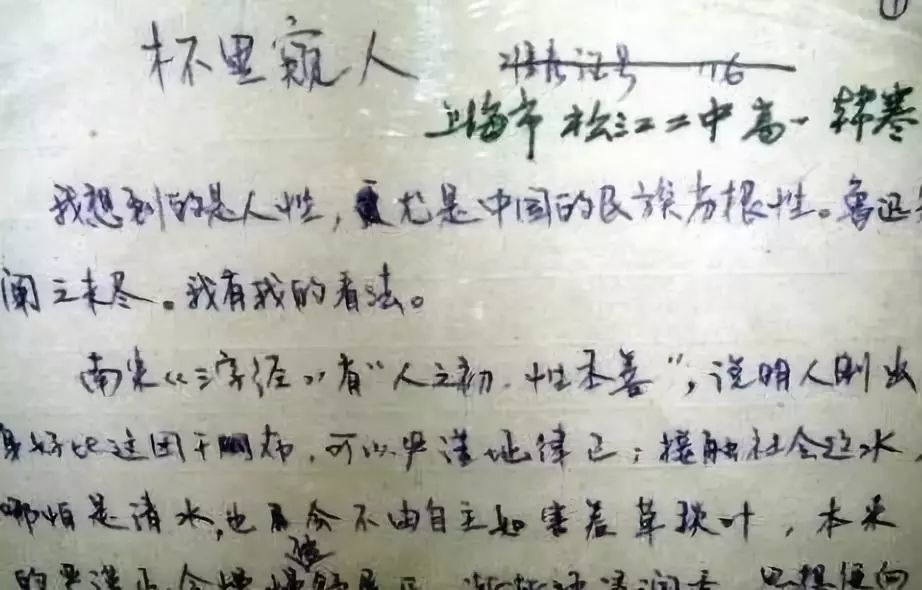 ①
杯里窥人
准考证号 116
上海市松江二中高一 韩寒
我想到的是人性，尤是中国的民族劣根性。鲁迅
阐之未尽。我有我的看法。
南宋《三字经》有“人之初，性本善”，说明人刚出
身好比这团干布，可以严谨地律己；接触社会这水，
哪怕是清水，也会不由自主如害羞草掀叶，本来
的严谨也会慢慢被